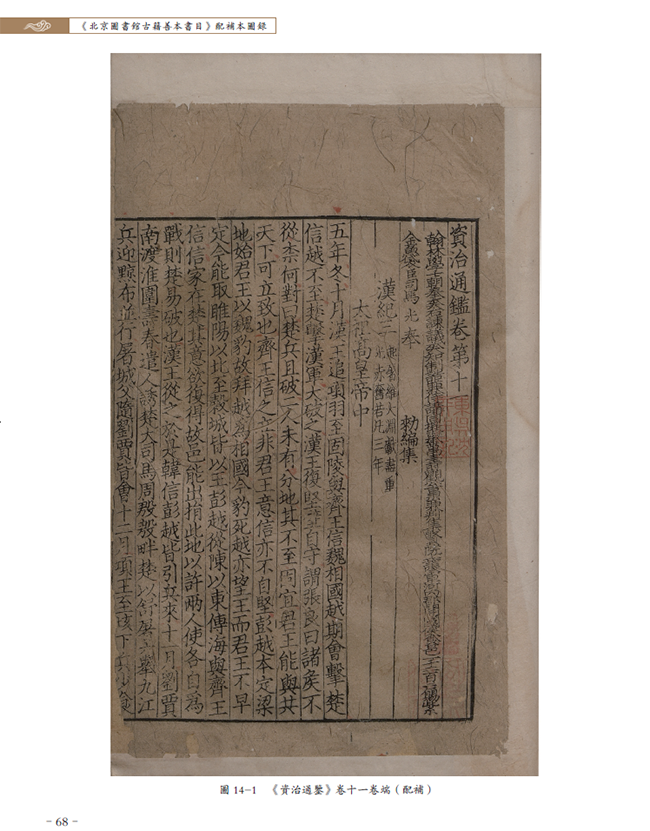 《北京圖書館古籍善本書目》配補本圖錄
資治通鑑卷第十
翰林學士朝奉大夫右諫議大夫知制誥兼侍講
金魚袋臣司馬光奉 敕編集
漢紀三 起屠維大淵獻盡重光赤奮若凡三年
太祖高皇帝中
五年冬十月漢王追項羽至固陵與齊王信魏相國越期會擊楚
信越不至楚擊漢軍大破之漢王復堅壁自守謂張良曰諸侯不
從柰何對曰楚兵且破二人未有分地其不至固宜君王能與共
天下可立致也齊王信之立非君王意信亦不自堅彭越本定梁
地始君王以魏豹故拜越為相國今豹死越亦望王而君王不早
定今能取睢陽以北至穀城皆以王彭越從陳以東傳海與齊王
信信家在楚其意欲復得故邑能出捐此地以許兩人使各自為
戰則楚易破也漢王從之於是韓信彭越皆引兵來十一月劉賈
南渡淮圍壽春遣人誘楚大司馬周殷殷畔楚以舒屠六舉九江
兵迎黥布並行屠城父隨劉賈皆會十二月項王至垓下兵少食
圖 14-1 《資治通鑒》卷十一卷端（配補）
- 68 -